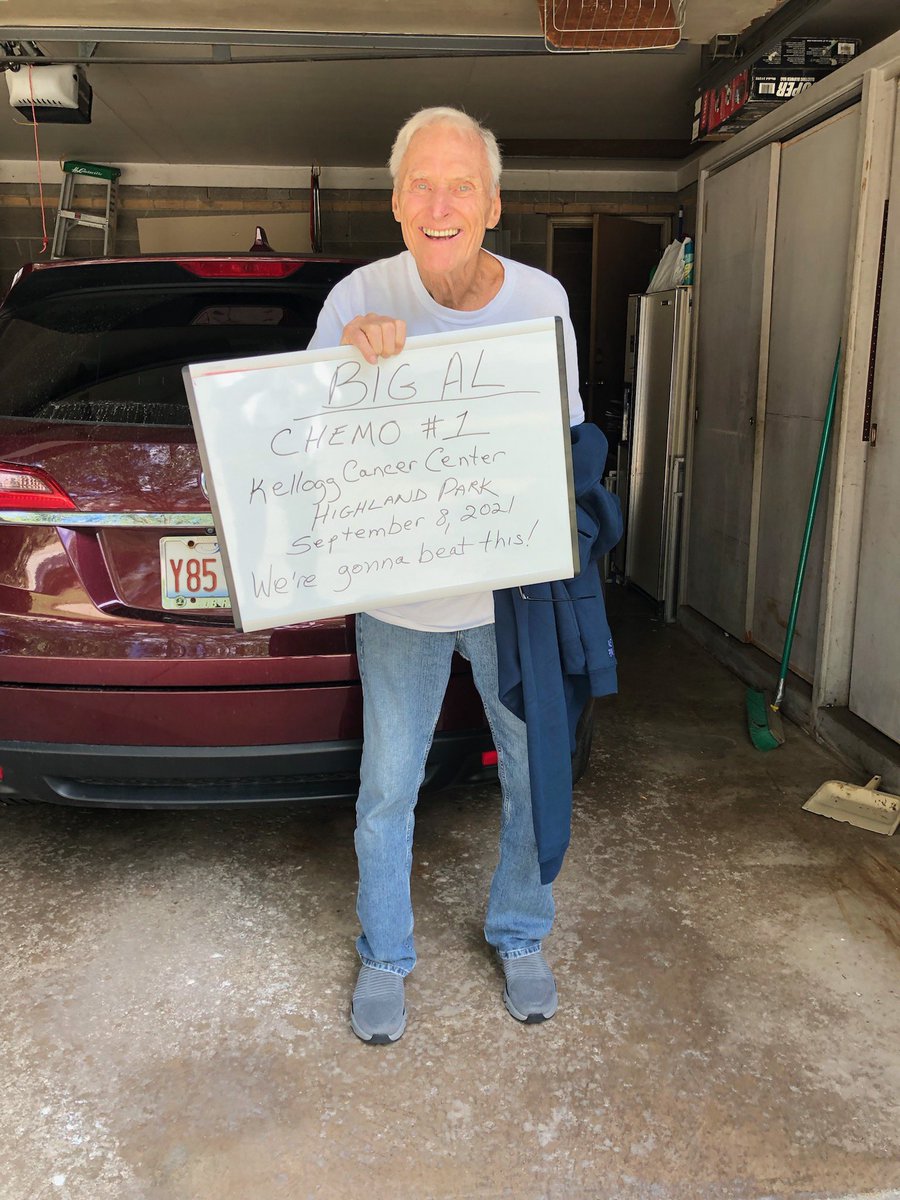 BIG AL
CHEMO #1
Kellogg Cancer Center
HIGHLAND PARK
September 8, 2021
We're gonna beat this!
Y85